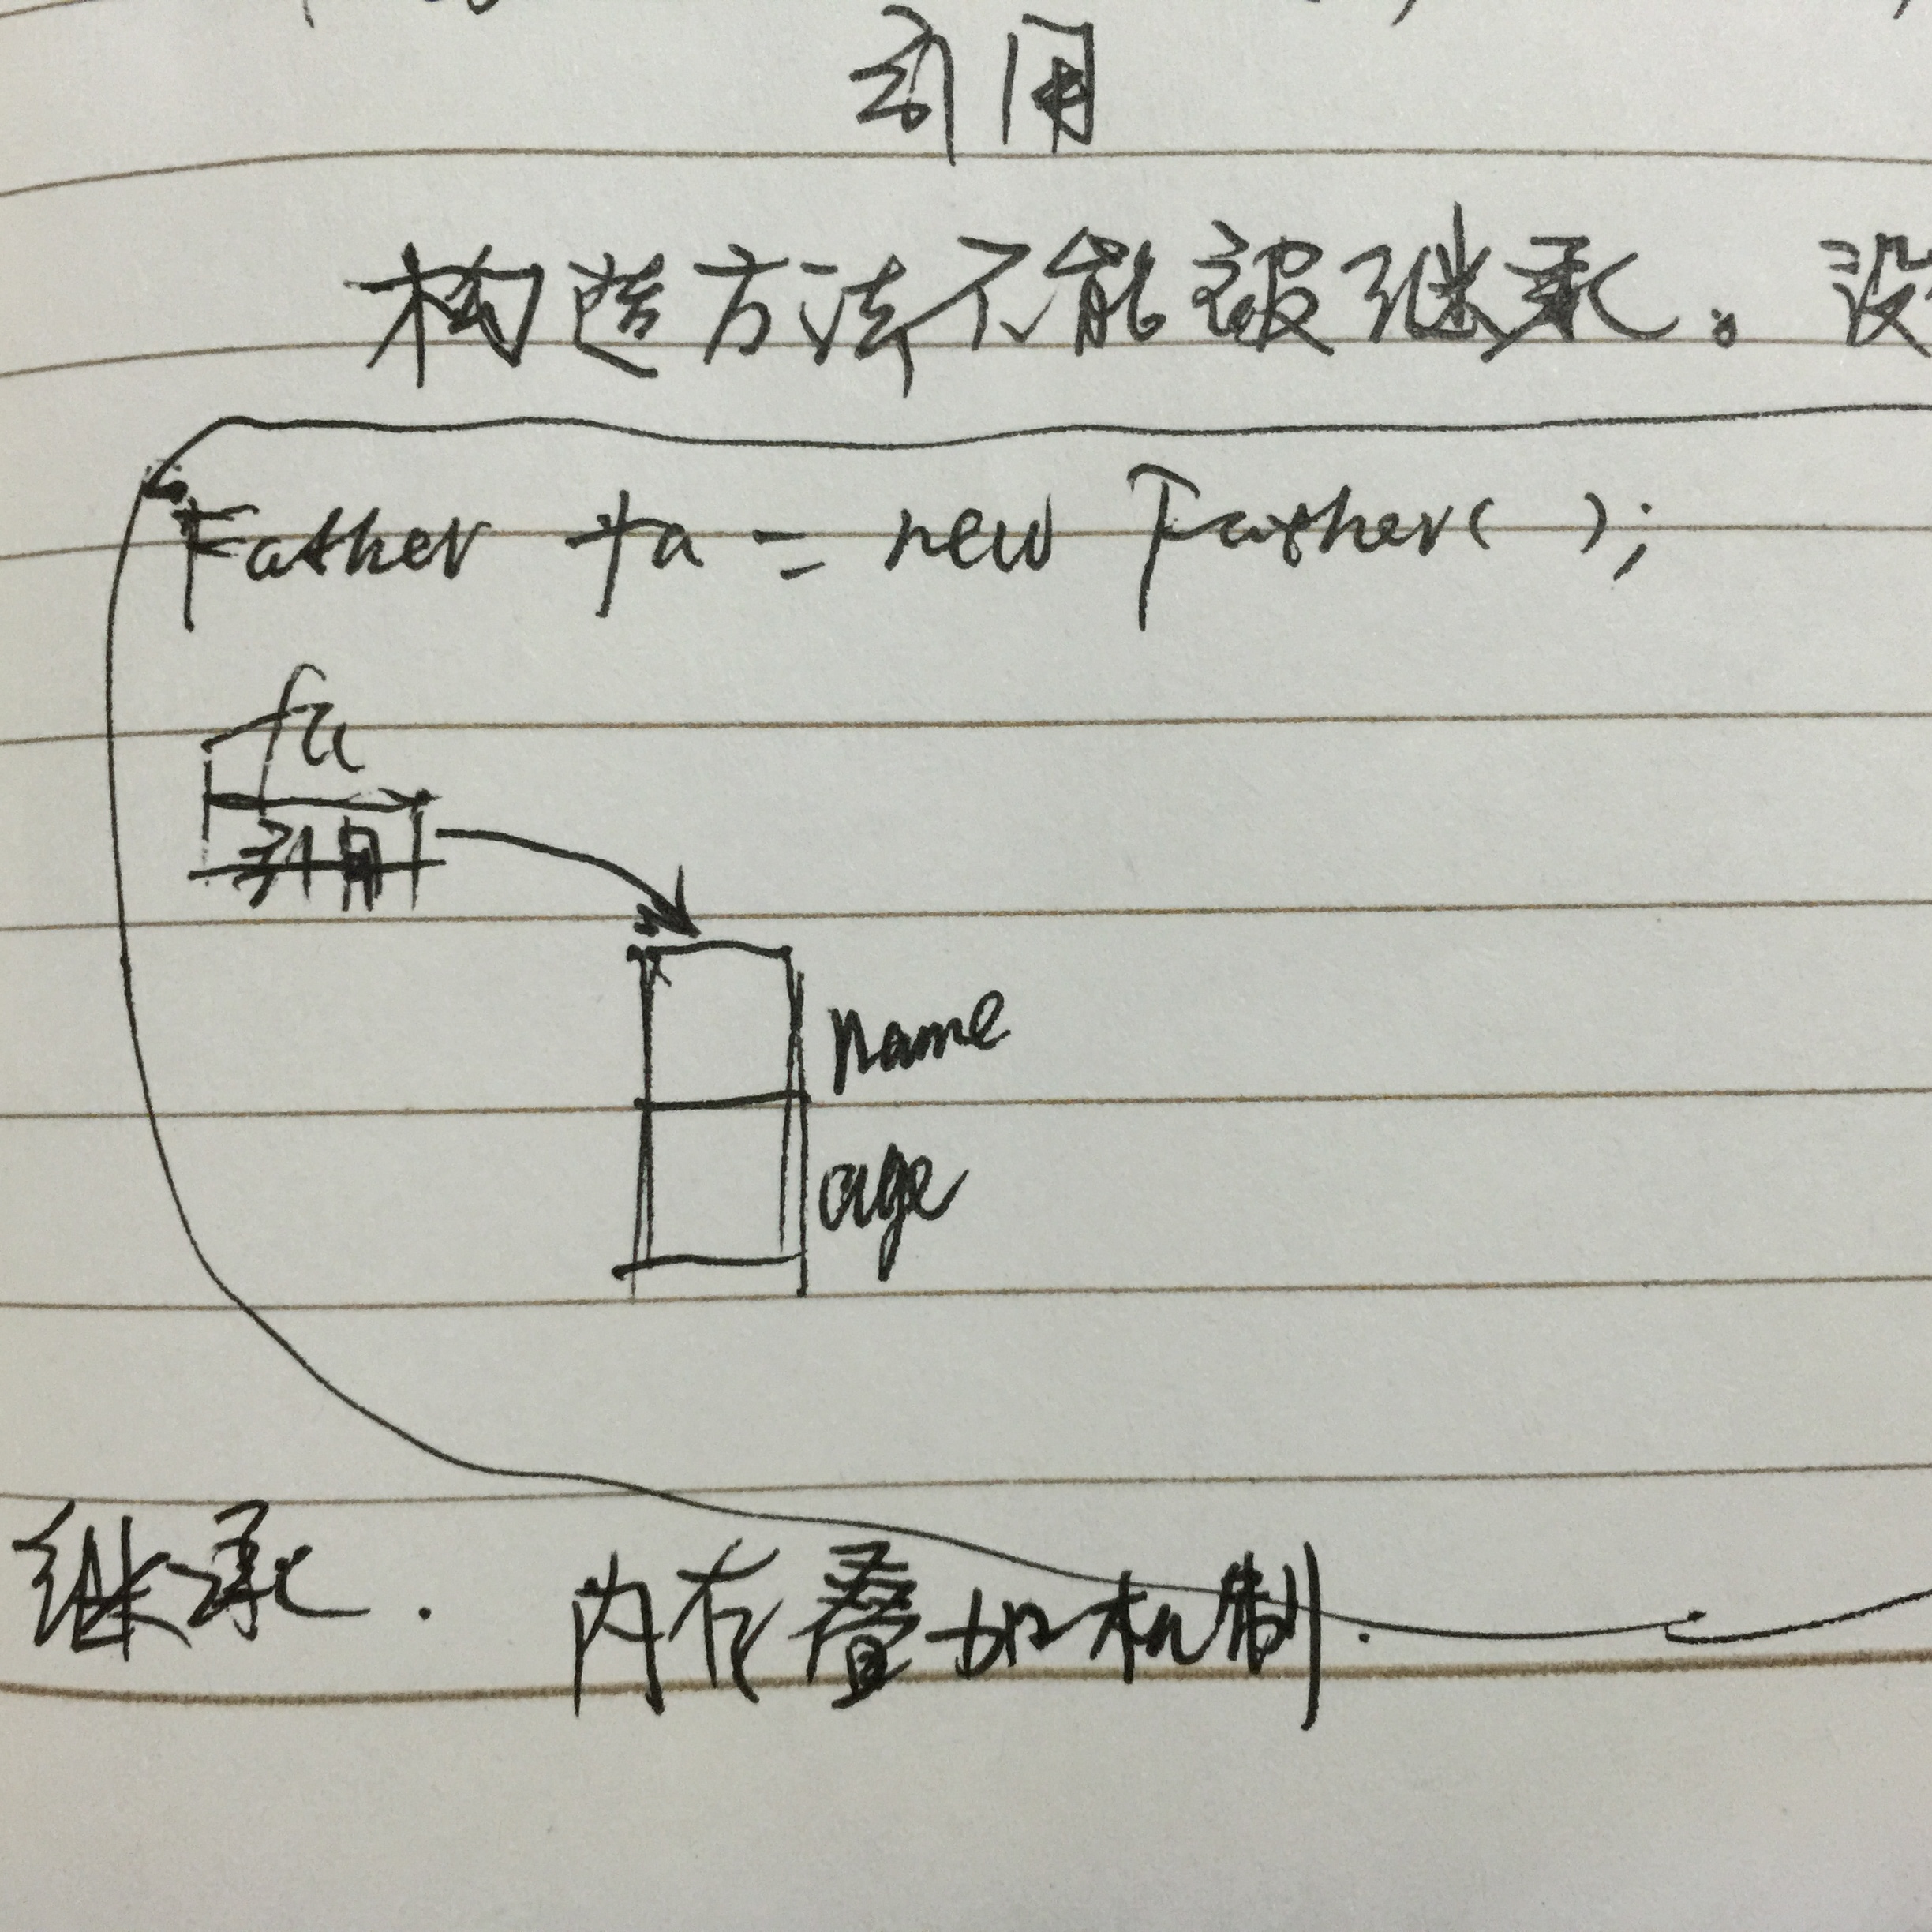 引用
构造方法不能被继承。没
Father fa = new Father( );
fa
引用
name
age
继承. 内存叠加机制.